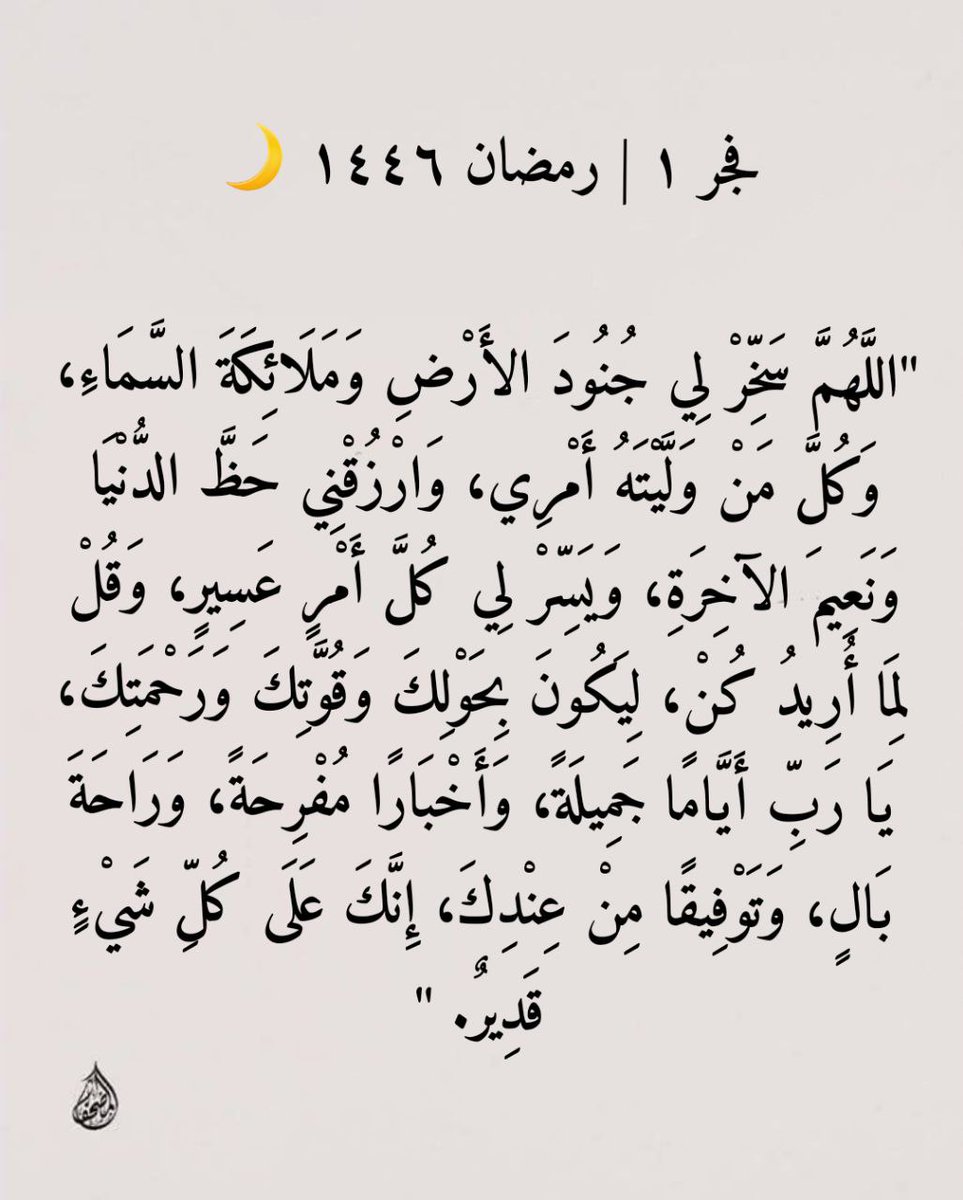 فجر ١ | رمضان ١٤٤٦ 🌙
"اللَّهُمَّ سَخِّرْ لِي جُنُودَ الأَرْضِ وَمَلَائِكَةَ السَّمَاءِ،
وَكُلَّ مَنْ وَلَّيْتَهُ أَمْرِي، وَارْزُقْنِي حَظَّ الدُّنْيَا
وَنَعِيمَ الآخِرَةِ، وَيَسِّرْ لِي كُلَّ أَمْرٍ عَسِيرٍ، وَقُلْ
لِمَا أُرِيدُ كُنْ، لِيَكُونَ بِحَوْلِكَ وَقُوَّتِكَ وَرَحْمَتِكَ،
يَا رَبِّ أَيَّامًا جَمِيلَةً، وَأَخْبَارًا مُفْرِحَةً، وَرَاحَةَ
بَالٍ، وَتَوْفِيقًا مِنْ عِنْدِكَ، إِنَّكَ عَلَى كُلِّ شَيْءٍ
قَدِيرٌ. "